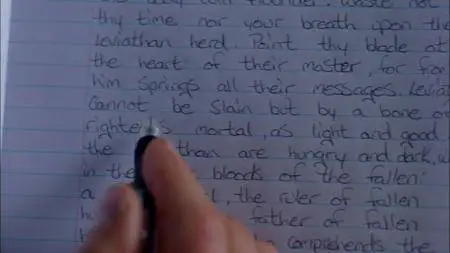 plunder. Waste not
thy time nor your breath upon the
Leviathan herd. Point thy blade at
the heart of their master, for from
him springs all their messages. Levia
cannot be slain but by a bone o
righte s mortal, as light and good
the than are hungry and dark, w
in the bloods of the fallen:
a l, the ruler of fallen
h father of fallen
comprehends the